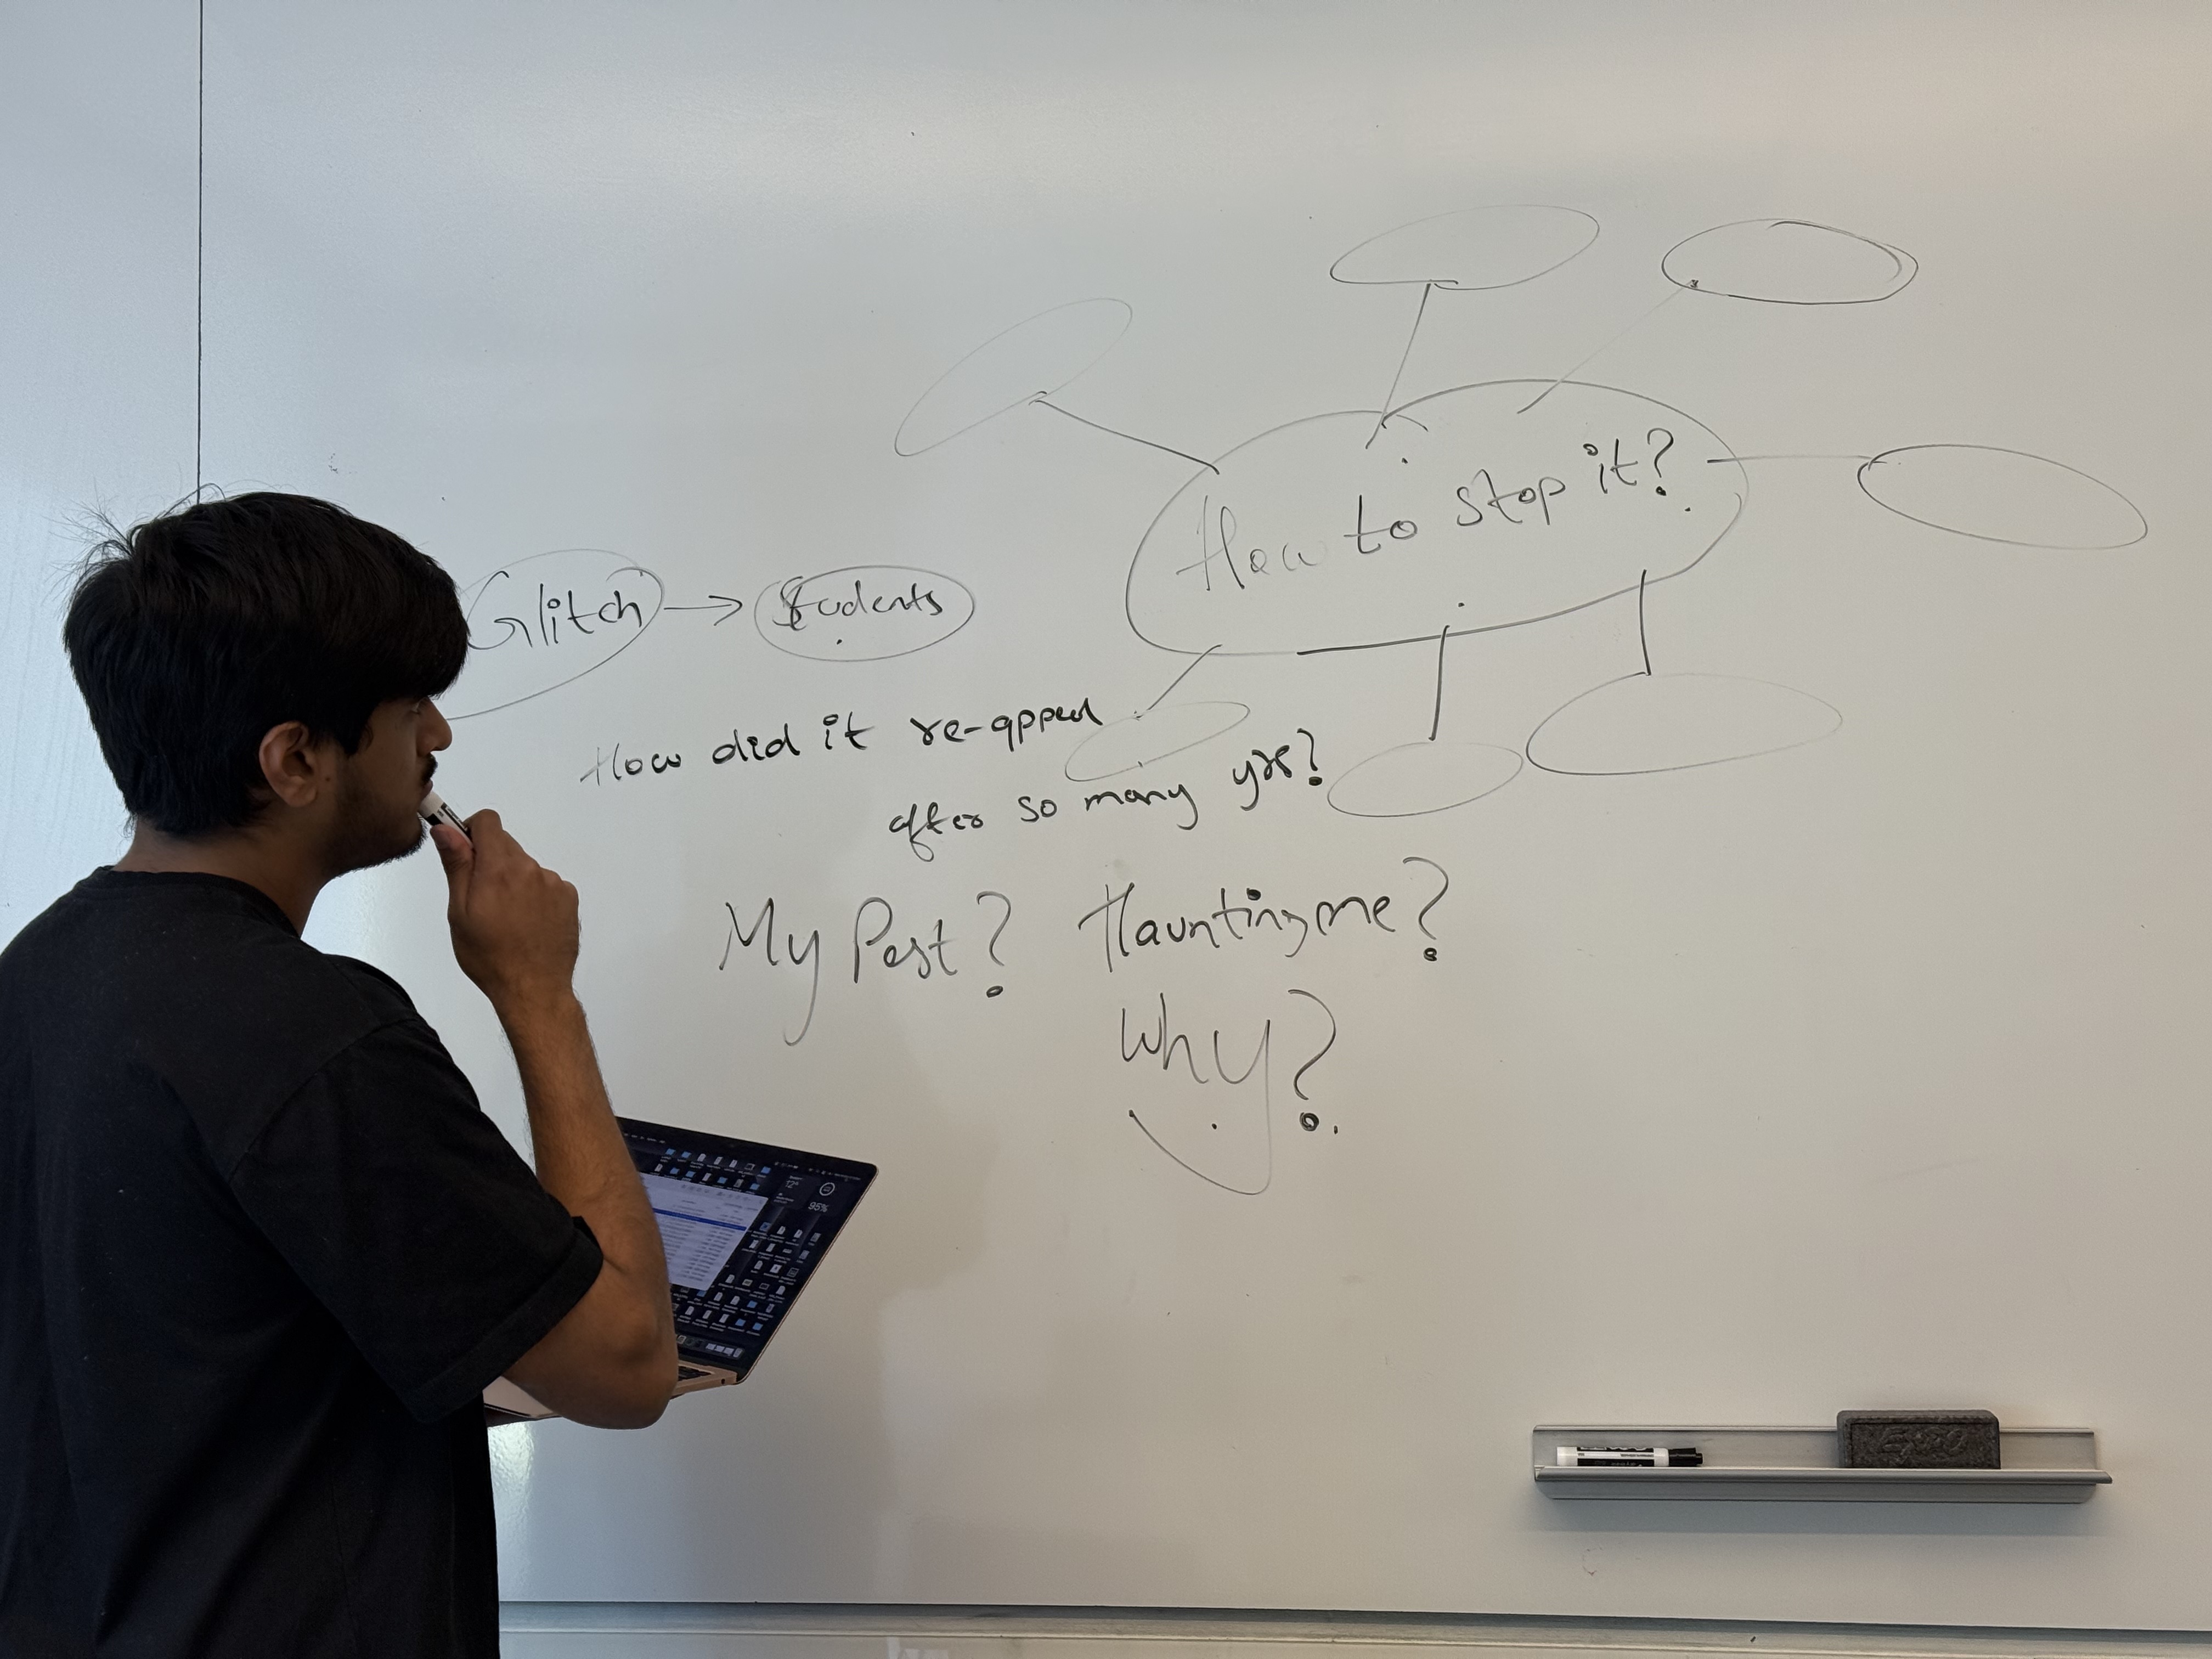 How to stop it?
Glitch → Students
How did it re-appeal
after so many yrs?
My Past? Haunting me?
Why?
95%
Expo